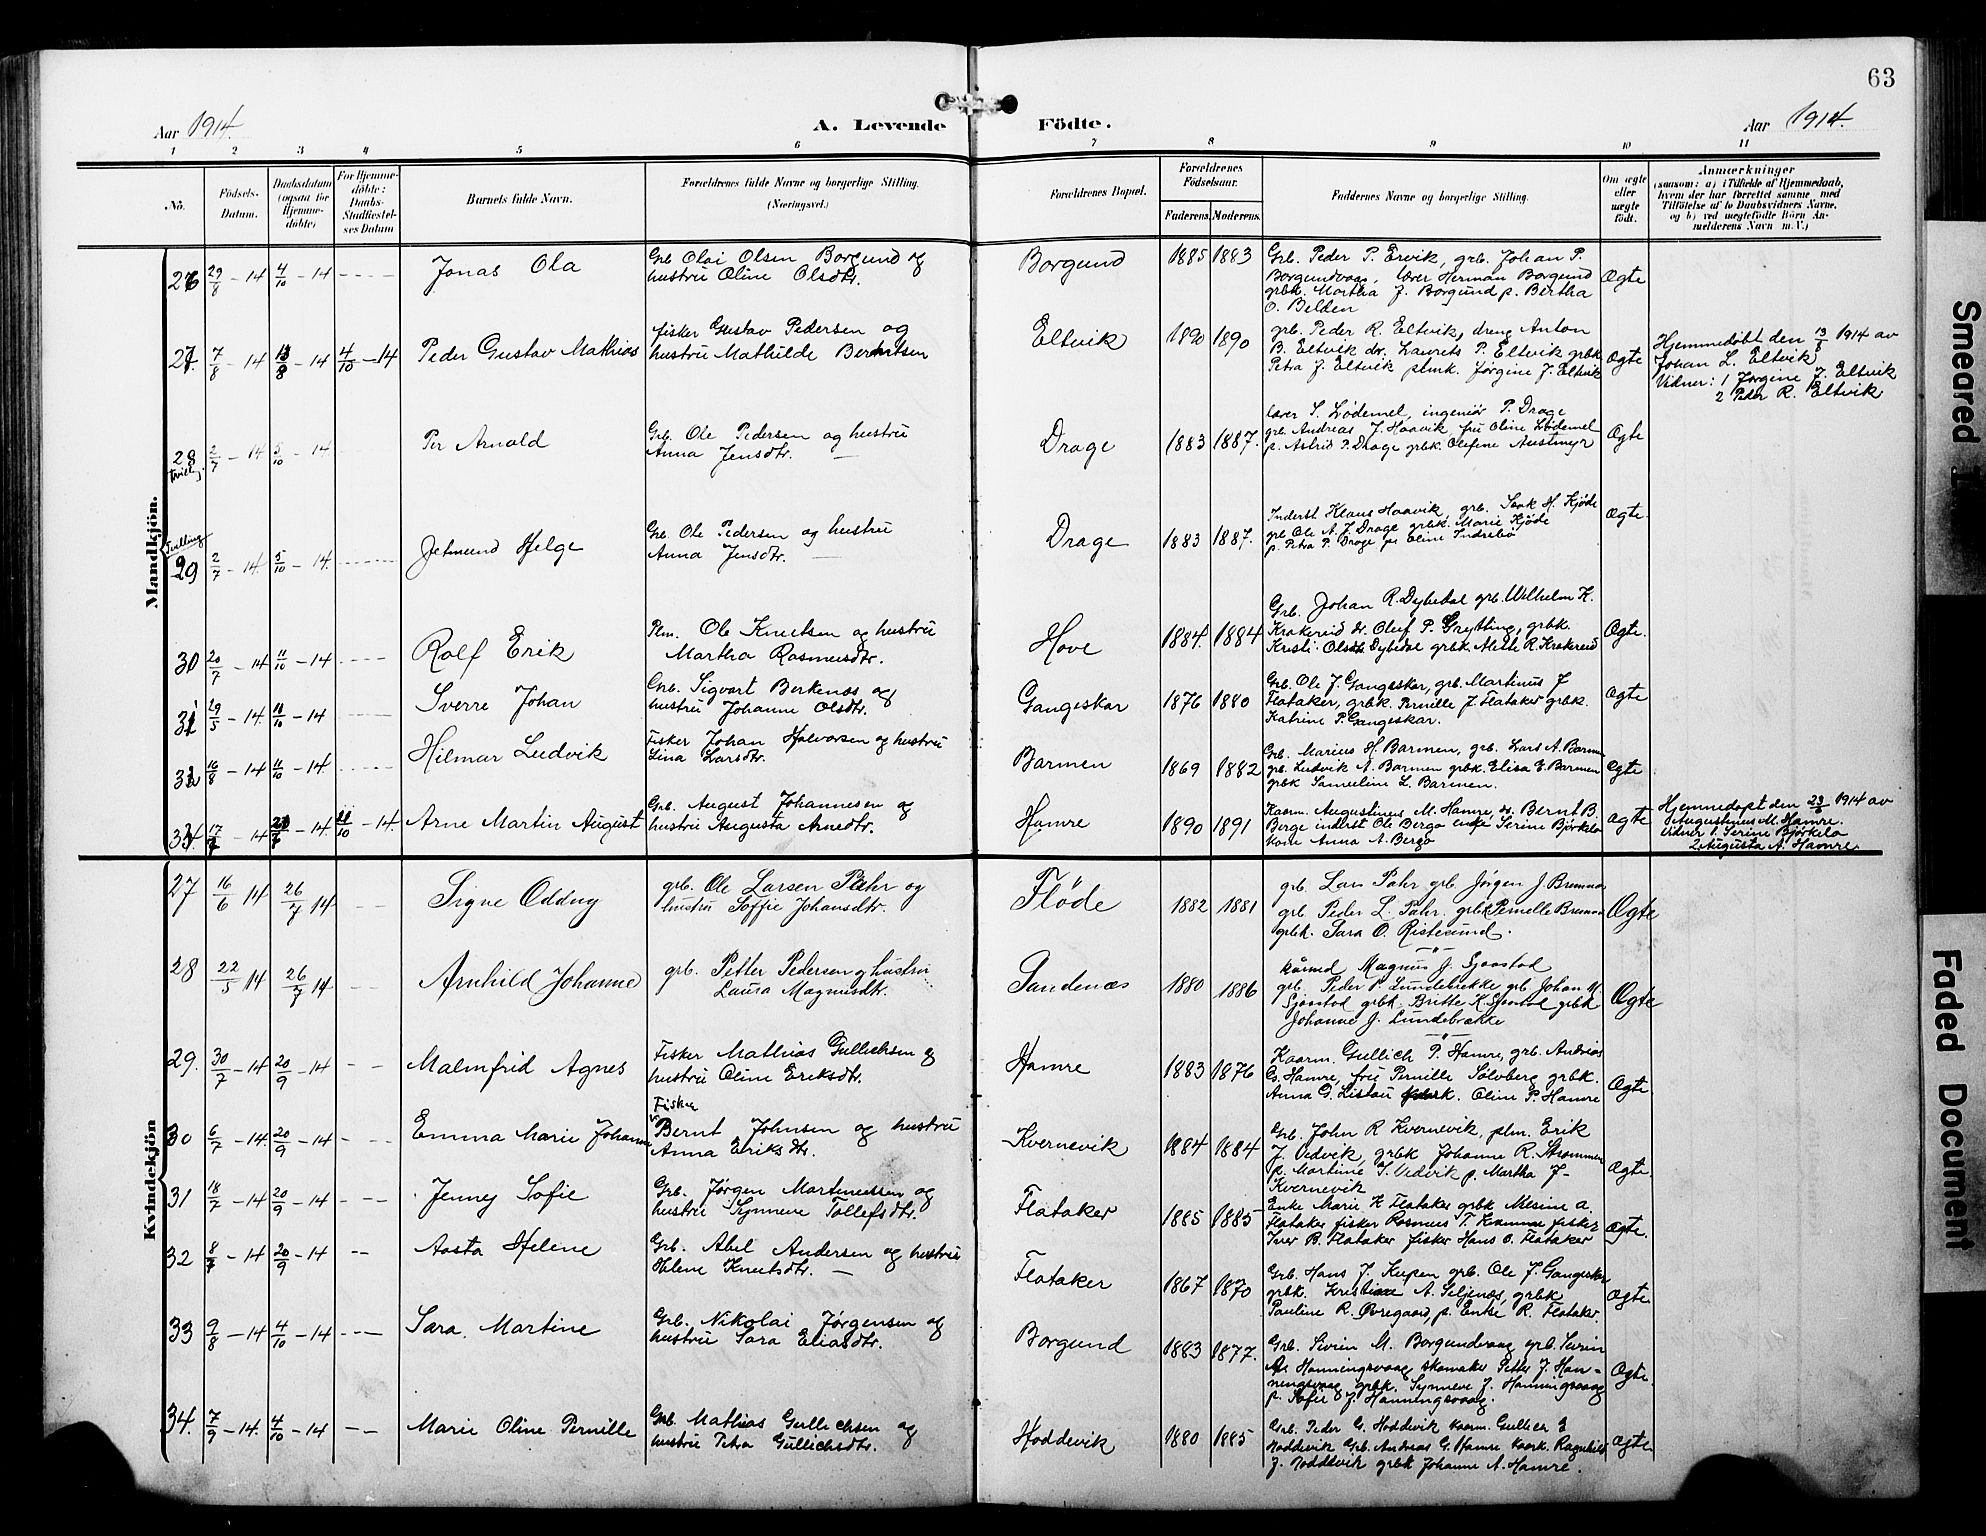 63
Aar 1914.
A. Levende Födte.
Aar 1914.
1 2 3 4 5 6 7 8 9 10 11
No.
Födsels-
Datum.
Daabsdatum
(ogsaa for
Hjemme-
döbte)
For Hjemme-
döbte:
Daabs-
Stadfæstel-
ses Datum
Barnets fulde Navn.
Forældrenes fulde Navne og borgerlige Stilling.
(Næringsvei.)
Forældrenes Bopæl.
Forældrenes
Födselsaar.
Faderens. Moderens.
Faddernes Navne og borgerlige Stilling.
Om ægte
eller
uægte
födt.
Anmærkninger
(saasom: a) i Tilfælde af Hjemmedaab,
hvem der har forrettet samme med
Tilföielse af to Daabsvidners Navne,
og b) ved uægtefödte Börn An-
melderens Navn m. V.)
Mandkjön.
26 29/8 - 14 4/10 - 14 Jonas Ola
Grb Olai Olsen Borgund og
hustru Oline Olsdtr.
Borgund 1885 1883
Grb. Peder P. Ervik, grb. Johan P.
Borgundvaag, lærer Herman Borgund
grbk. Martha J. Borgund p. Bertha
O. Belden
Ægte
27 7/8 - 14 13/8 - 14 4/10 - 14 Peder Gustav Mathias
fisker Gustav Pedersen og
hustru Mathilde Berntsen
Eltvik 1890 1890
grb. Peder R. Eltvik, dreng Anton
B. Eltvik dr. Laurets P. Eltvik grbk
Petra J. Eltvik plmk. Jørgine J. Eltvik
Ægte
Hjemmedøbt den 13/8 1914 av
Johan L. Eltvik
Vidner: 1 Jørgine J. Eltvik
2 Peder R. Eltvik
28 2/7 - 14 5/10 - 14 Per Arnold
tvilling
Grb. Ole Pedersen og hustru
Anna Jensdtr.
Drage 1883 1887.
lærer S. Lødemel, ingeniør P. Drage
grb. Andreas J. Haavik, fru Oline Lødemel
p. Astrid P. Drage grbk. Olefine Austmyr
Ægte
Tvilling
29 2/7 - 14. 5/10 - 14. Jetmund Helge
Grb. Ole Pedersen og hustru
Anna Jensdtr.
Drage 1883 1887.
Inderst Klaus Haavik, grb. Isak H. Kjøde
grb Ole A. J. Drage grbk. Marie Kjøde
p. Petra P. Drage pe Oline Indrebø
Ægte.
30 20/7 - 14 11/10 - 14 Rolf Erik
Plm. Ole Knutsen og hustru
Martha Rasmusdtr.
Hove 1884. 1884
Grb. Johan R. Dybedal grb. Wilhelm K.
Krakereid dr. Oluf P. Grytting, grbk.
Kristi Olsdtr Dybdal grbk. Mette R. Krakereid
Ægte.
31 29/5 - 14. 11/10 - 14 Sverre Johan
Grb. Sigvart Berkenes og
hustru Johanne Olsdtr.
Gangeskar 1876 1880
Grb. Ole J. Gangeskar, grb. Martinus J
Flataker, grbk. Pernille J. Flataker grbk.
Katrine P. Gangeskar.
Ægte
32 16/8 - 14 11/10 - 14. Hilmar Ludvik
Fisker Johan Halvorsen og hustru
Lina Larsdtr.
Barmen 1869 1882
Grb. Marius H. Barmen, grb. Lars A. Barmen
grb. Ludvik A. Barmen grbk. Elisa E. Barmen
grbk Samueline L. Barmen.
Ægte
33 17/7 - 14 23/7 - 14 11/10 - 14. Arne Martin August
Grb. August Johannesen og
hustru Augusta Arnedtr.
Hamre 1890 1891
Kaarm. Augustinus M. Hamre, dr. Bernt B.
Berge inderst Ole Bergø enke Serine Bjørkelo
kone Anna A. Bergø
Ægte
Hjemmedøpt den 23/7 1914 av
Augustinus M. Hamre.
Vidner 1. Serine Bjørkelo
2. Augusta A. Hamre.
Kvindekjön
27 16/6 14 26/7 14 Signe Oddny
grb. Ole Larsen Pahr og
hustru Soffie Johansdtr.
Fløde 1882 1881
grb Lars Pahr grb. Jörgen J. Bremnes
grb. Peder L. Pahr. grbk Pernelle Bremnes
grbk. Sara O. Ristesund.
Ægte
28 22/5 14 26/7 14 Arnhild Johanne
grb. Petter Pedersen og hustru
Laura Magnusdtr.
Sandenæs 1880 1886
kårmd Magnus J. Sjaastad
grb. Peder P. Lundebrekke grb Johan M.
Sjaastad grbk. Britte K. Sjaastad grbk
Johanne J. Lundebrække
Ægte
29. 30/7 - 14 20/9 - 14 Malmfrid Agnes
Fisker Mathias Gullichsen og
hustru Oline Eriksdtr.
Hamre 1883 1876
Kaarm. Gullich P. Hamre, grb. Andreas
G. Hamre, fru Pernille Solvberg grbk.
Anna G. Listau grbk. Oline P. Hamre
Ægte.
30 6/7 - 14. 20/9 - 14 Emma Marie Johanne
Fisker
Bernt Johnsen og hustru
Anna Eriksdtr.
Kvernevik 1884 1884
Grb. John R Kvernevik, plm. Erik
J. Vedvik, grbk Johanne R. Strømmen
p. Martine I. Vedvik p. Martha J.
Kvernevik
Ægte.
31 18/7 - 14 20/9 - 14 Jenny Sofie
Grb. Jørgen Martinussen og
hustru Synneve Tollefsdtr.
Flataker 1885 1885
Enke Marie K Flataker grbk Mesine A.
Flataker fisker Rasmus T. Hamme fisker
Iver B. Flataker fisker Hans O. Flataker
Ægte.
32 8/7 - 14 20/9 - 14 Aasta Helene
Grb. Abel Andersen og hustru
Helene Knutsdtr.
Flataker 1867 1870
Grb. Hans J. Kupen grb. Ole J. Gangeskar
grbk. Kristiane A. Seljenes, grbk
Pauline R. Øvregaard, p. Enkè R. Flataker.
Ægte
33 9/8 - 14 4/10 - 14 Sara Martine
Grb. Nikolai Jørgensen og
hustru Sara Eliasdtr.
Borgund 1883 1877.
Grb. Sivern M. Borgundvaag grb. Severin
A. Hanningsvaag skomaker Petter J. Han-
ningsvaag grbk. Synneve J. Hanningsvaag
p. Sofie J. Hanningsvaag.
Ægte.
34. 7/9 - 14. 4/10 - 14 Marie Oline Pernille
Grb. Mathias Gullichsen og
hustru Petra Gullichsdtr.
Hoddevik 1880 1885
Grb. Peder G. Hoddevik kaarm. Gullich E
Hoddevik Grb. Andreas G. Hamre kaark. Ragnhild
J. Hoddevik grbk Johanne A. Hamre.
Ægte
Smeared
Faded Document